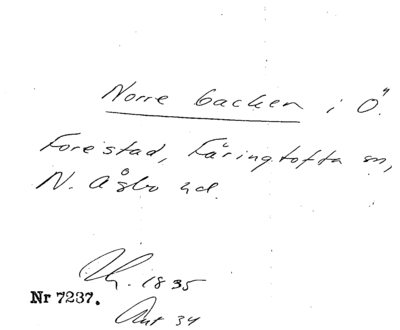 Norre backen i Ö.
Forestad, Färingtofta sn,
N. Åsbo hd.
1835
Nr 7237.
Akt 34